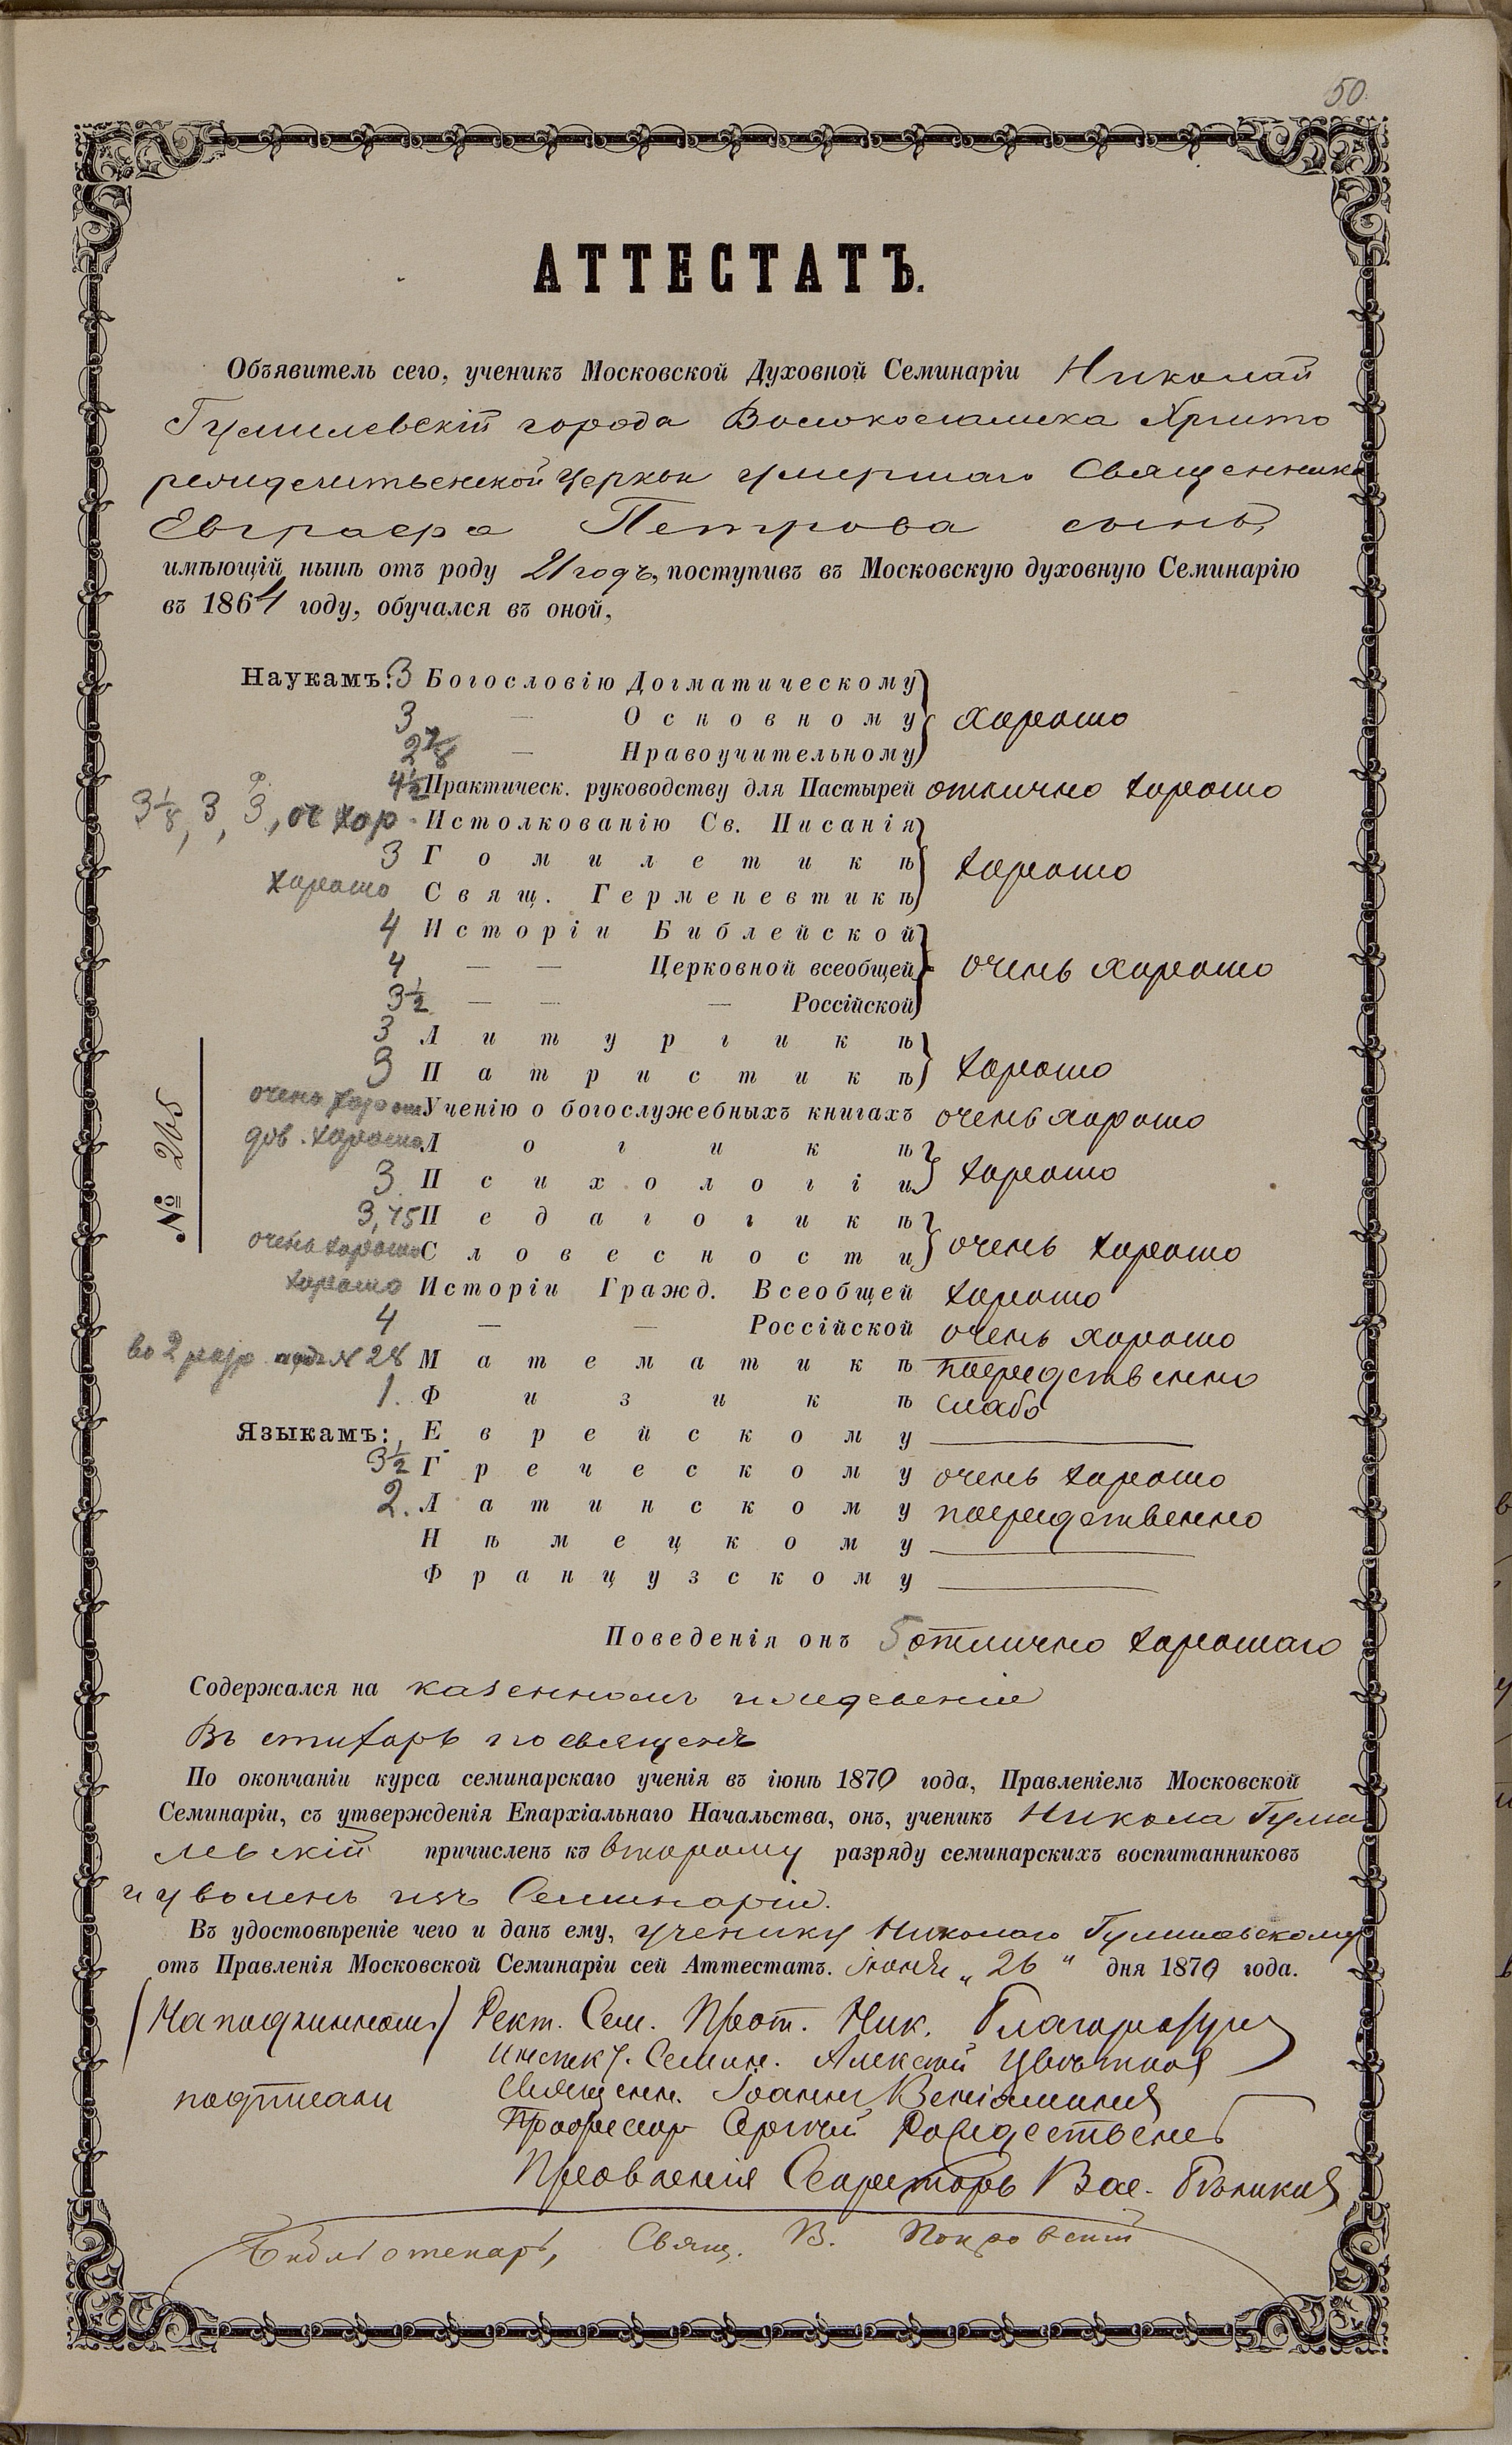 50.
АТТЕСТАТЪ.
Объявитель сего, ученикъ Московской Духовной Семинаріи Николай
Гумилевскій города Волоколамска Христо
рождественской церкви умершаго Священника
Евграфа Петрова сынъ,
имѣющій нынѣ отъ роду 21 годъ, поступивъ въ Московскую духовную Семинарію
въ 1864 году, обучался въ оной,
Наукамъ: 3 Богословію Догматическому
3 — Основному } хорошо
2 7/8 — Нравоучительному
4 1/2 Практическ. руководству для Пастырей отлично хорошо
3 1/8, 3, 3, оч хор. Истолкованію Св. Писанія
3 Гомилетикѣ } хорошо
хорошо Свящ. Герменевтикѣ
4 Исторіи Библейской
4 — — Церковной всеобщей } очень хорошо
3 1/2 — — — Россійской
3 Литургикѣ
3 Патристикѣ } хорошо
очень хорошо Ученію о богослужебныхъ книгахъ очень хорошо
дов. хорошо Логикѣ
3 Психологіи } хорошо
3,75 Педагогикѣ
очень хорошо Словесности } очень хорошо
хорошо Исторіи Гражд. Всеобщей хорошо
4 — — Россійской очень хорошо
во 2 разр. подъ № 28 Математикѣ посредственно
1. Физикѣ слабо
Языкамъ: Еврейскому —
3 1/2 Греческому очень хорошо
2. Латинскому посредственно
Нѣмецкому —
Французскому —
№ 265
Поведенія онъ 5 отлично хорошаго
Содержался на казенномъ иждивеніи
Въ стихарь посвященъ
По окончаніи курса семинарскаго ученія въ іюнѣ 1870 года, Правленіемъ Московской
Семинаріи, съ утвержденія Епархіальнаго Начальства, онъ, ученикъ Никола Гуми
левскій причисленъ къ второму разряду семинарскихъ воспитанниковъ
и уволенъ изъ Семинаріи.
Въ удостовѣреніе чего и данъ ему, ученику Николаю Гумилевскому
отъ Правленія Московской Семинаріи сей Аттестатъ. Іюня „26" дня 1870 года.
(На подлинномъ) Рект. Сем. Прот. Ник. Благоразумов
Инспект. Семин. Алексѣй Цвѣтков
подписали Священн. Іоаннъ Веніаминов
Профессор Сергѣй Рождественс
Правленія Секретарь Вас. Бѣликов
Библіотекарь, Свящ. В. Покровскій